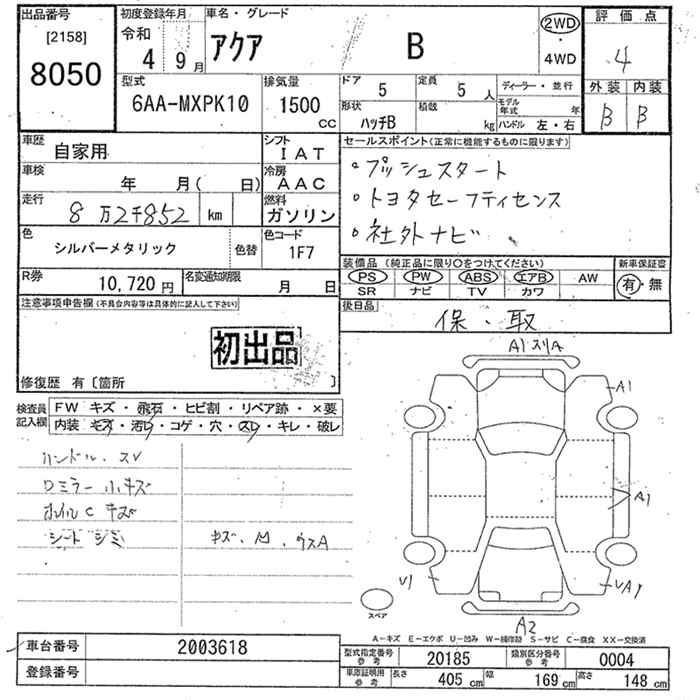 出品番号
[2158]
8050
初度登録年月
令和
4 9月
車名・グレード
アクア B
2WD
・
4WD
評価点
4
外装 内装
B B
型式
6AA-MXPK10
排気量
1500
CC
ドア
5
定員
5 人
形状
ハッチB
積載
kg
ディーラー・並行
モデル年式 年
ハンドル 左・右
車歴
自家用
シフト
IAT
車検
年 月( 日)
冷房
AAC
走行
8万2千852 km
燃料
ガソリン
色
シルバーメタリック
色替
色コード
1F7
R券
10,720 円
名変通知期限
月 日
セールスポイント(正常に機能するものに限ります)
・プッシュスタート
・トヨタセーフティセンス
・社外ナビ
装備品 (純正品に限り○をつけてください)
PS PW ABS エアB AW
SR ナビ TV カワ
新車保証書
有・無
後日品
保・取
注意事項申告欄(不具合内容等は具体的に記入して下さい)
初出品
修復歴 有〔箇所 〕
検査員
記入欄
FW キズ・飛石・ヒビ割・リペア跡・×要
内装 キズ・汚レ・コゲ・穴・スレ・キレ・破レ
ハンドル・スレ
ワミラー 小キズ
ホイルC キズ
シート シミ
キズ、凹、ウスA
A1スリA
A1
A1
V1
UA1
A2
スペア
A-キズ E-エクボ U-凹み W-補修跡 S-サビ C-腐食 XX-交換済
車台番号
2003618
登録番号
型式指定番号
参考
20185
類別区分番号
参考
0004
車庫証明用
参考
長さ 405 cm
幅 169 cm
高さ 148 cm